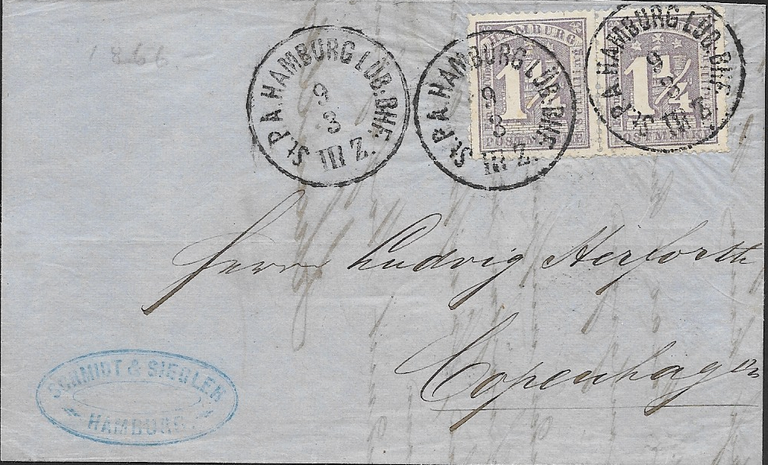 1866
St. P. A. HAMBURG LÜB. BHF.
9
3
III Z.
St. P. A. HAMBURG LÜB. BHF.
9
3
III Z.
St. P. A. HAMBURG LÜB. BHF.
9
3
III Z.
HAMBURG
1¼
POSTMARKE
HAMBURG
1¼
POSTMARKE
Herrn Ludvig Herforth
Copenhagen
SCHMIDT & SIEGLER
HAMBURG.